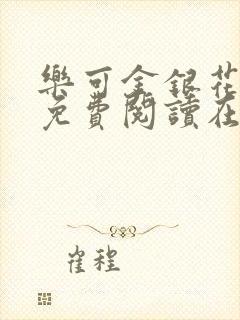 樂可金銀花
免費閱讀在
崔程